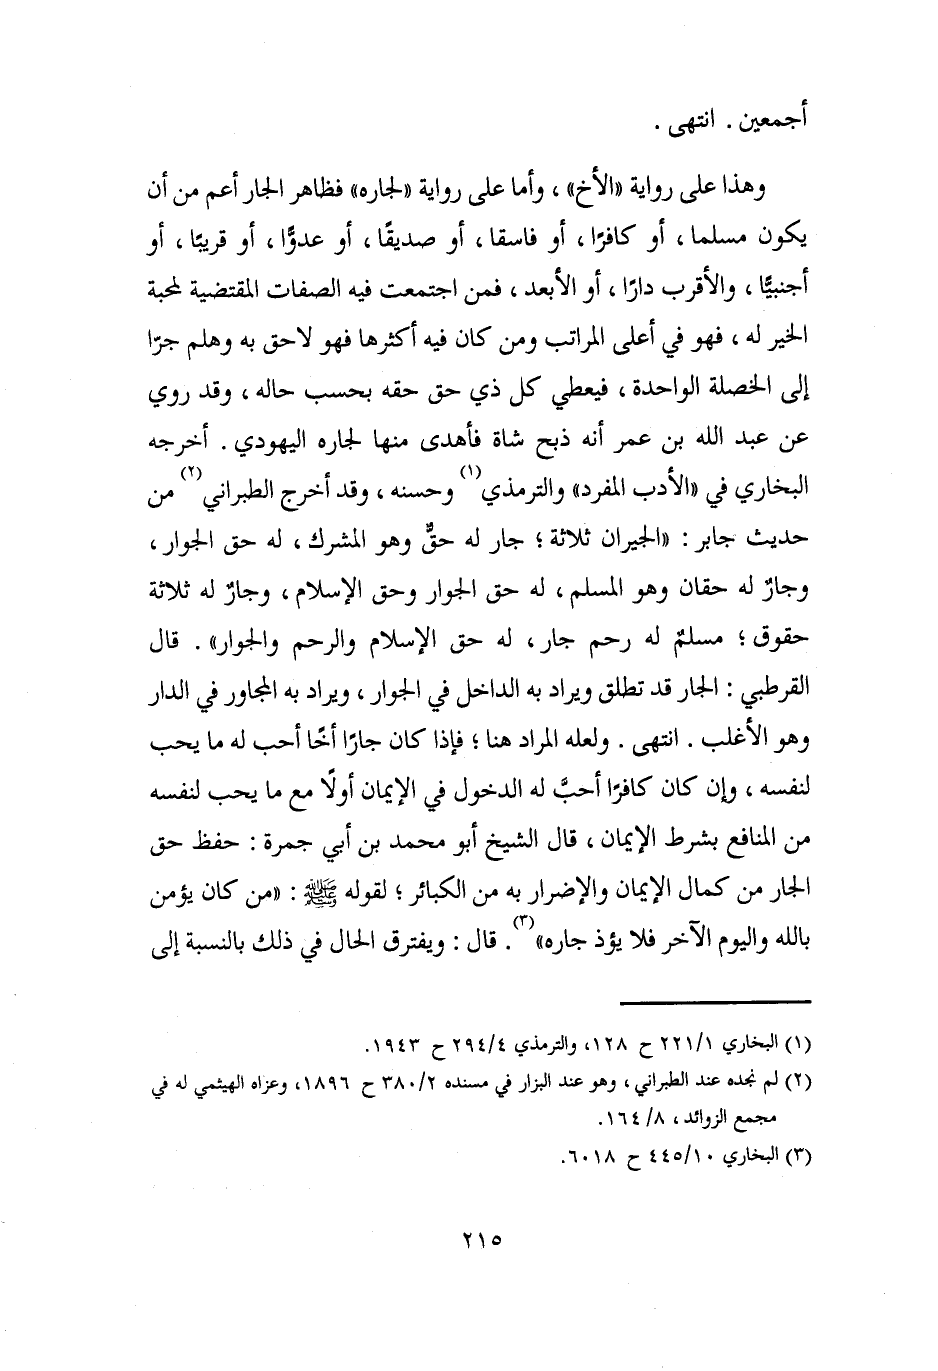 أجمعين . انتهى .
وهذا على رواية «الأخ» ، وأما على رواية «لجاره» فظاهر الجار أعم من أن
يكون مسلما ، أو كافرًا ، أو فاسقا ، أو صديقًا ، أو عدوًّا ، أو قريبًا ، أو
أجنبيًّا ، والأقرب دارًا ، أو الأبعد ، فمن اجتمعت فيه الصفات المقتضية لمحبة
الخير له ، فهو في أعلى المراتب ومن كان فيه أكثرها فهو لاحق به وهلم جرّا
إلى الخصلة الواحدة ، فيعطي كل ذي حق حقه بحسب حاله ، وقد روي
عن عبد الله بن عمر أنه ذبح شاة فأهدى منها لجاره اليهودي . أخرجه
البخاري في «الأدب المفرد» والترمذي(١) وحسنه ، وقد أخرج الطبراني(٢) من
حديث جابر : «الجيران ثلاثة ؛ جار له حقٌّ وهو المشرك ، له حق الجوار ،
وجارٌ له حقان وهو المسلم ، له حق الجوار وحق الإسلام ، وجارٌ له ثلاثة
حقوق ؛ مسلمٌ له رحم جار ، له حق الإسلام والرحم والجوار» . قال
القرطبي : الجار قد تطلق ويراد به الداخل في الجوار ، ويراد به المجاور في الدار
وهو الأغلب . انتهى . ولعله المراد هنا ؛ فإذا كان جارًا أخًا أحب له ما يحب
لنفسه ، وإن كان كافرًا أحبَّ له الدخول في الإيمان أولًا مع ما يحب لنفسه
من المنافع بشرط الإيمان ، قال الشيخ أبو محمد بن أبي جمرة : حفظ حق
الجار من كمال الإيمان والإضرار به من الكبائر ؛ لقوله ﷺ : «من كان يؤمن
بالله واليوم الآخر فلا يؤذ جاره»(٣) . قال : ويفترق الحال في ذلك بالنسبة إلى
(١) البخاري ٢٢١/١ ح ١٢٨، والترمذي ٢٩٤/٤ ح ١٩٤٣.
(٢) لم نجده عند الطبراني ، وهو عند البزار في مسنده ٣٨٠/٢ ح ١٨٩٦، وعزاه الهيثمي له في
مجمع الزوائد ، ١٦٤/٨.
(٣) البخاري ٤٤٥/١٠ ح ٦٠١٨.
٢١٥